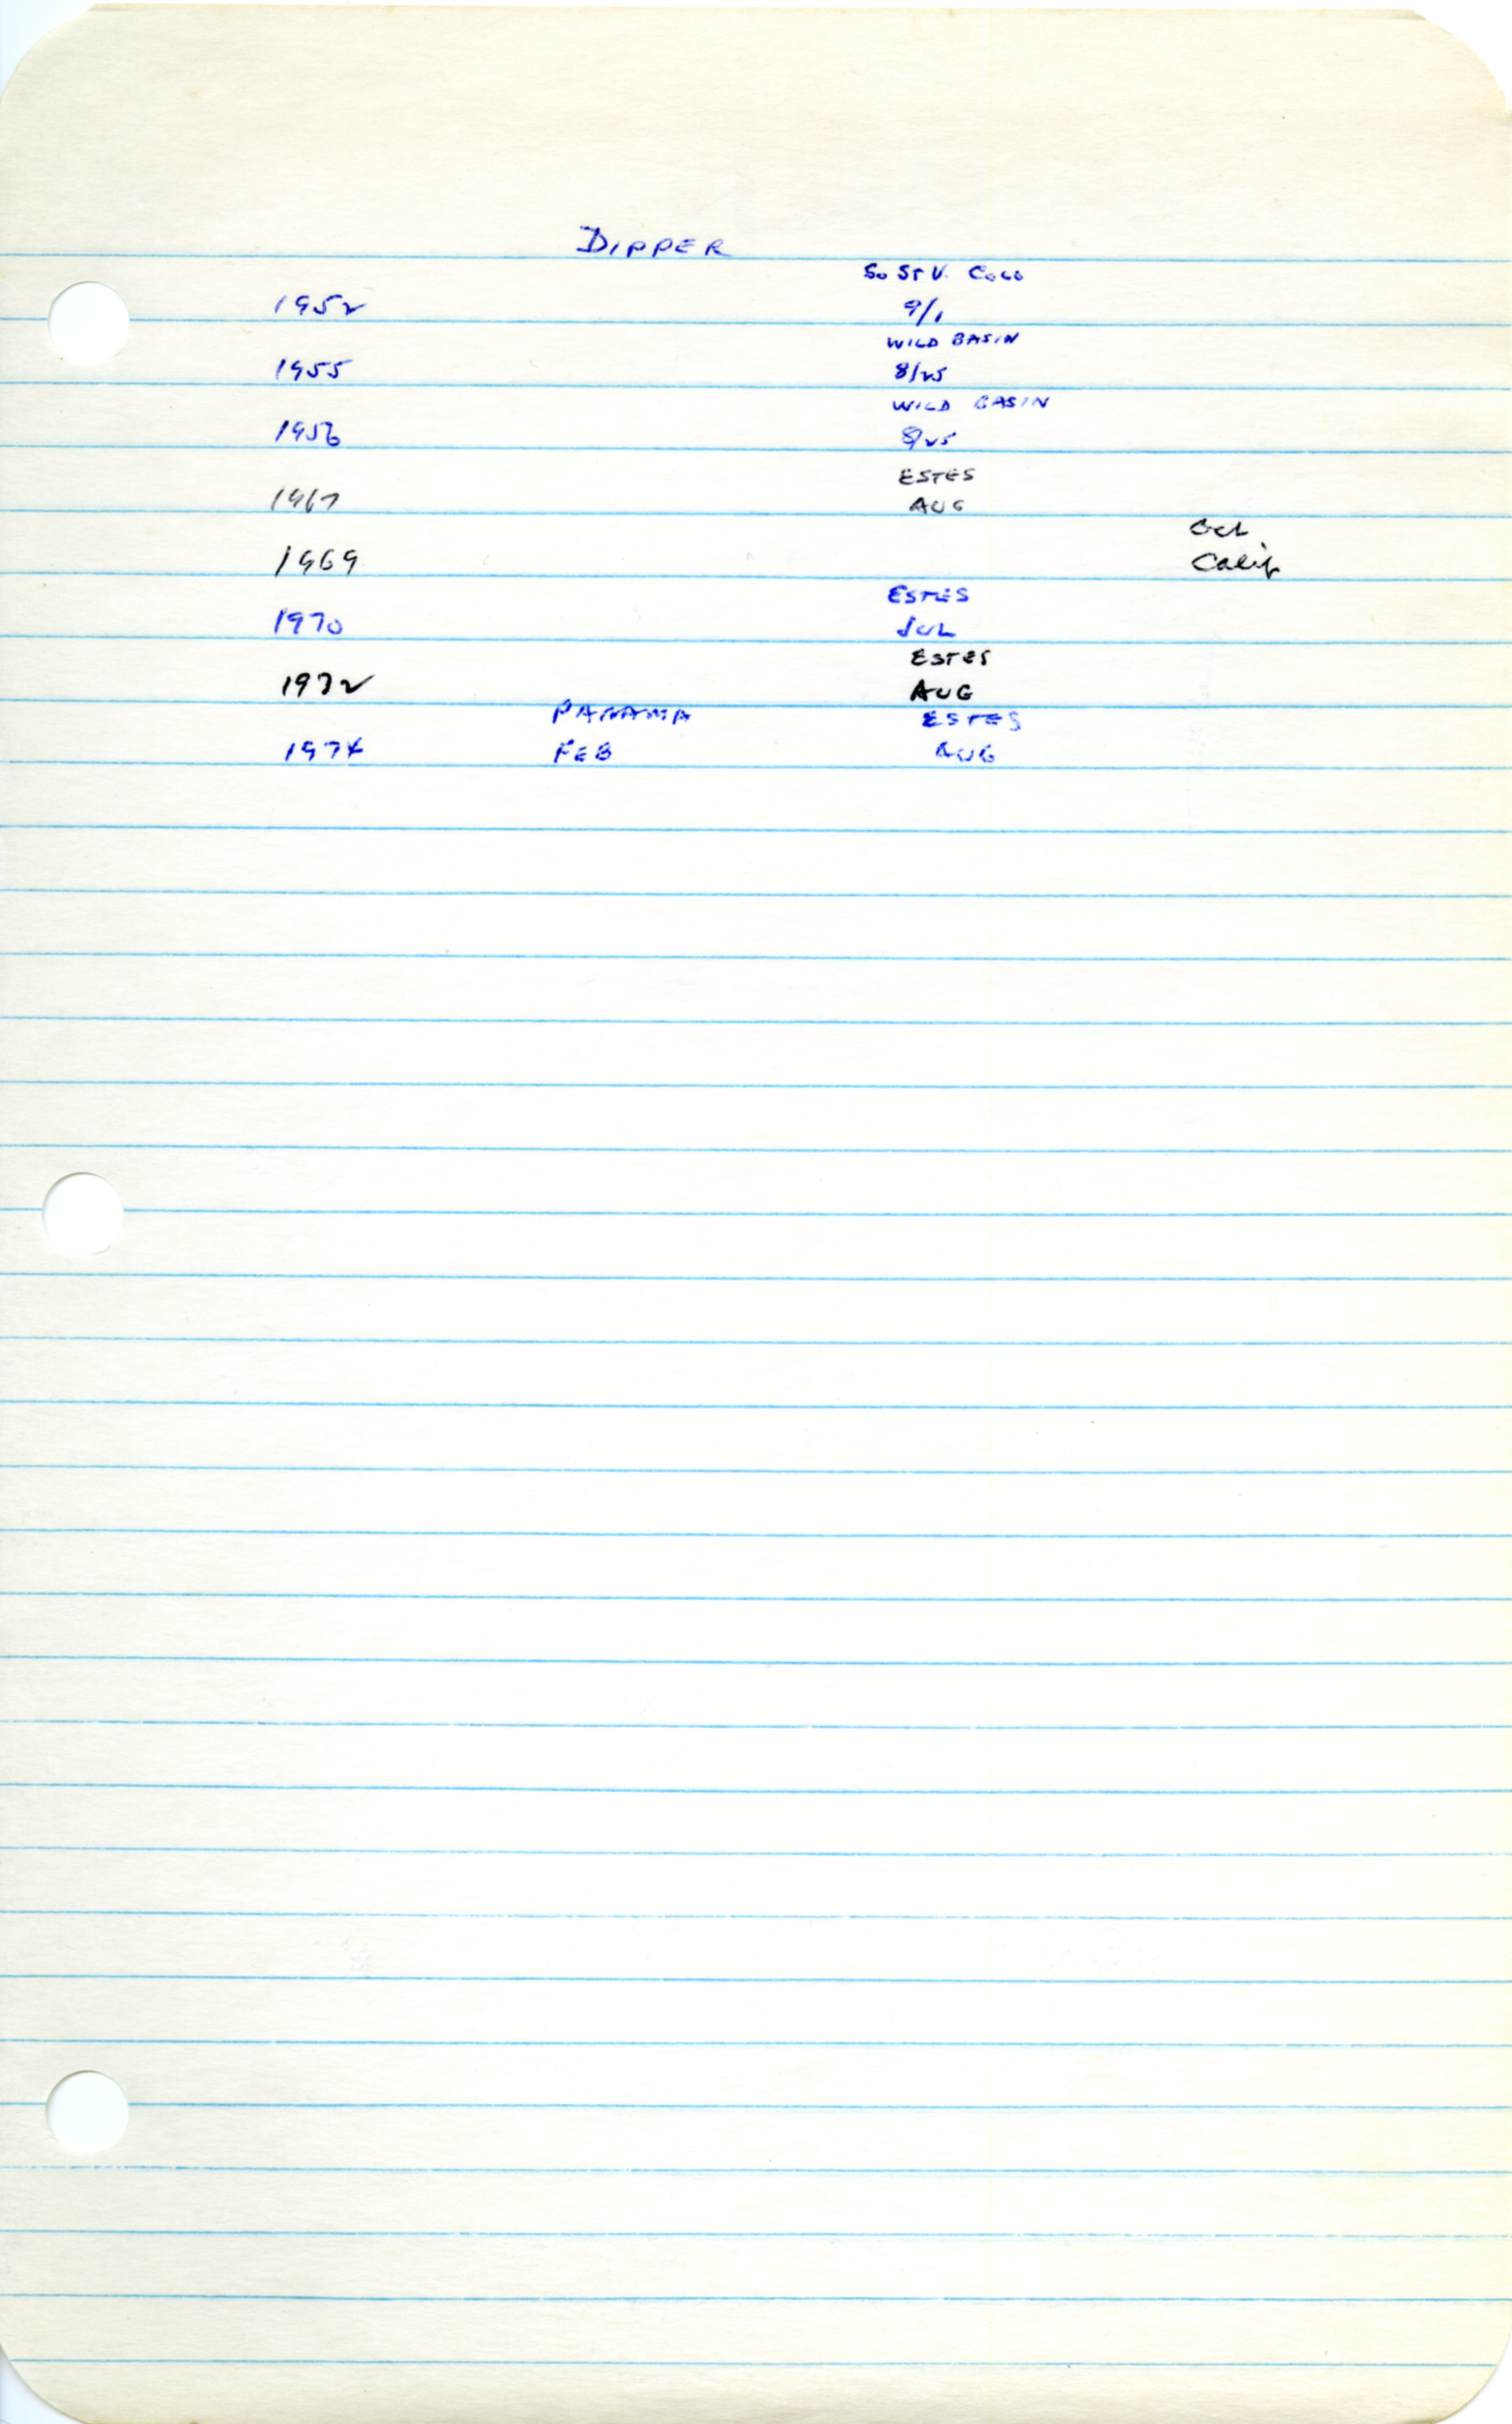 DIPPER
So St V. Colo
1952 9/1
WILD BASIN
1955 8/25
WILD BASIN
1956 8/25
ESTES
1967 AUG
Oct
1969 Calif
ESTES
1970 JUL
ESTES
1972 AUG
PANAMA ESTES
1974 FEB AUG